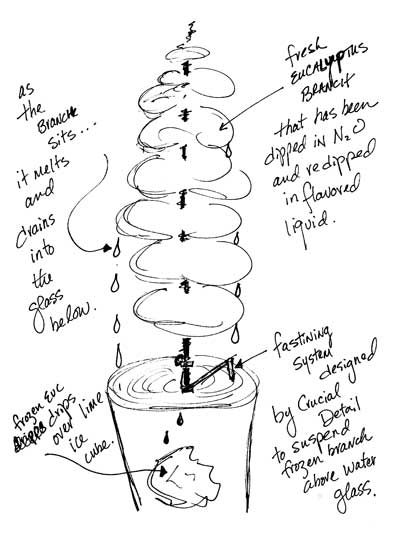 as
the
BRANCH
sits...
it melts
and
drains
into
the
glass
below.
fresh
EUCALYPTUS
BRANCH
that has been
dipped in N₂O
and redipped
in flavored
liquid.
frozen euc
drips
over lime
ice
cube.
fastining
system
designed
by Crucial
Detail
to suspend
frozen branch
above water
glass.